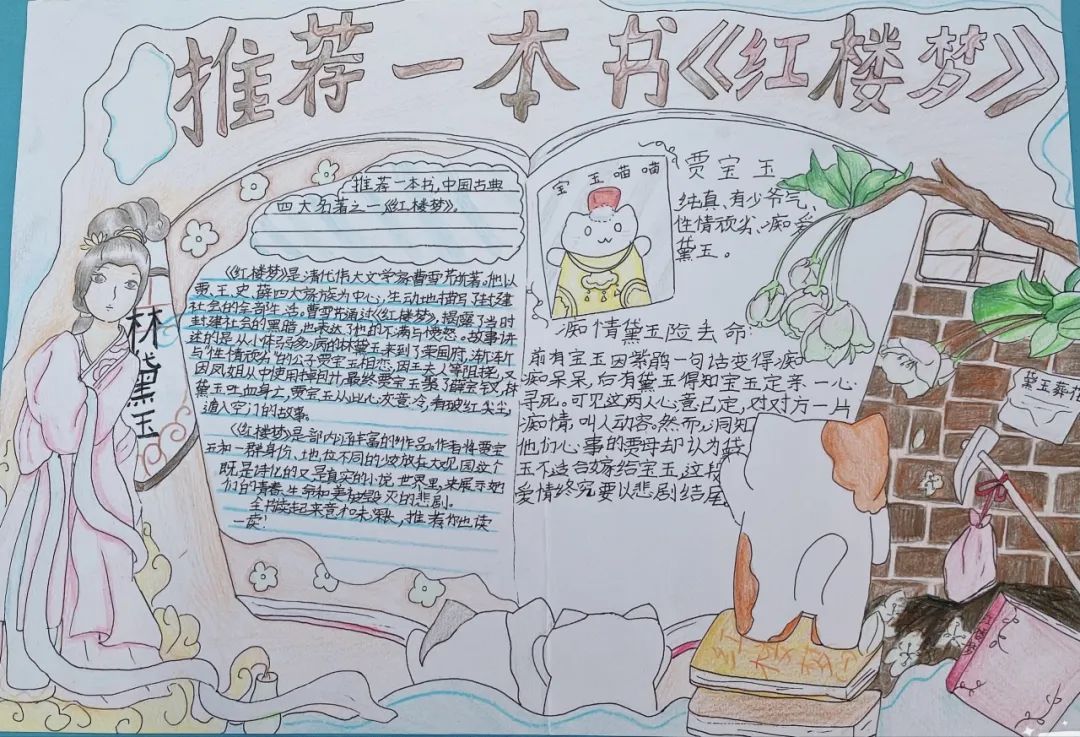 推荐一本书《红楼梦》
推荐一本书,中国古典
四大名著之一《红楼梦》。
《红楼梦》是清代伟大文学家曹雪芹所著。他以
贾、王、史、薛四大家族为中心,生动地描写了封建
社会的全部生活。曹雪芹通过《红楼梦》,揭露了当时
封建社会的黑暗,也表达了他的不满与愤怒。故事讲
述的是从小体弱多病的林黛玉来到了荣国府,渐渐
与"性情顽劣"的公子贾宝玉相恋,因王夫人等阻挠,又
因凤姐从中使用掉包计,最终贾宝玉娶了薛宝钗,林
黛玉吐血身亡,贾宝玉从此心灰意冷,看破红尘,
遁入空门的故事。
《红楼梦》是部内涵丰富的作品。作者将贾宝
玉和一群身份、地位不同的少女放在大观园这个
既是诗化的又是真实的小说世界里,来展示她
们的青春、生命和美被毁灭的悲剧。
全书读起来意和未深长,推荐你也读
一读!
林黛玉
宝玉喵喵
贾宝玉
纯真、有少爷气、
性情顽劣、痴爱
黛玉。
痴情黛玉险丢命:
前有宝玉因紫鹃一句话变得痴
痴呆呆,后有黛玉得知宝玉定亲一心
寻死。可见这两人心意已定,对对方一片
痴情,叫人动容。然而心同知
他们心事的贾母却认为黛
玉不适合嫁给宝玉,这段
爱情终究要以悲剧结尾
黛玉葬花
红楼梦
红楼梦